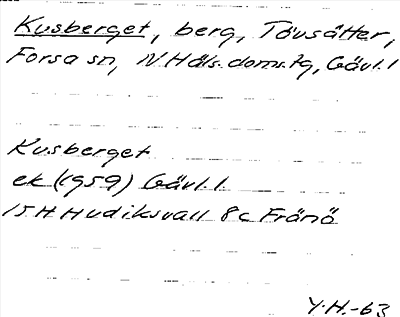 Kusberget, berg, Tövsätter,
Forsa sn, N Häls. doms.?g, Gävl. l
Kusberget
ek (1959) Gävl. l.
15 H Hudiksvall 8 c Frönö
Y.H.-63